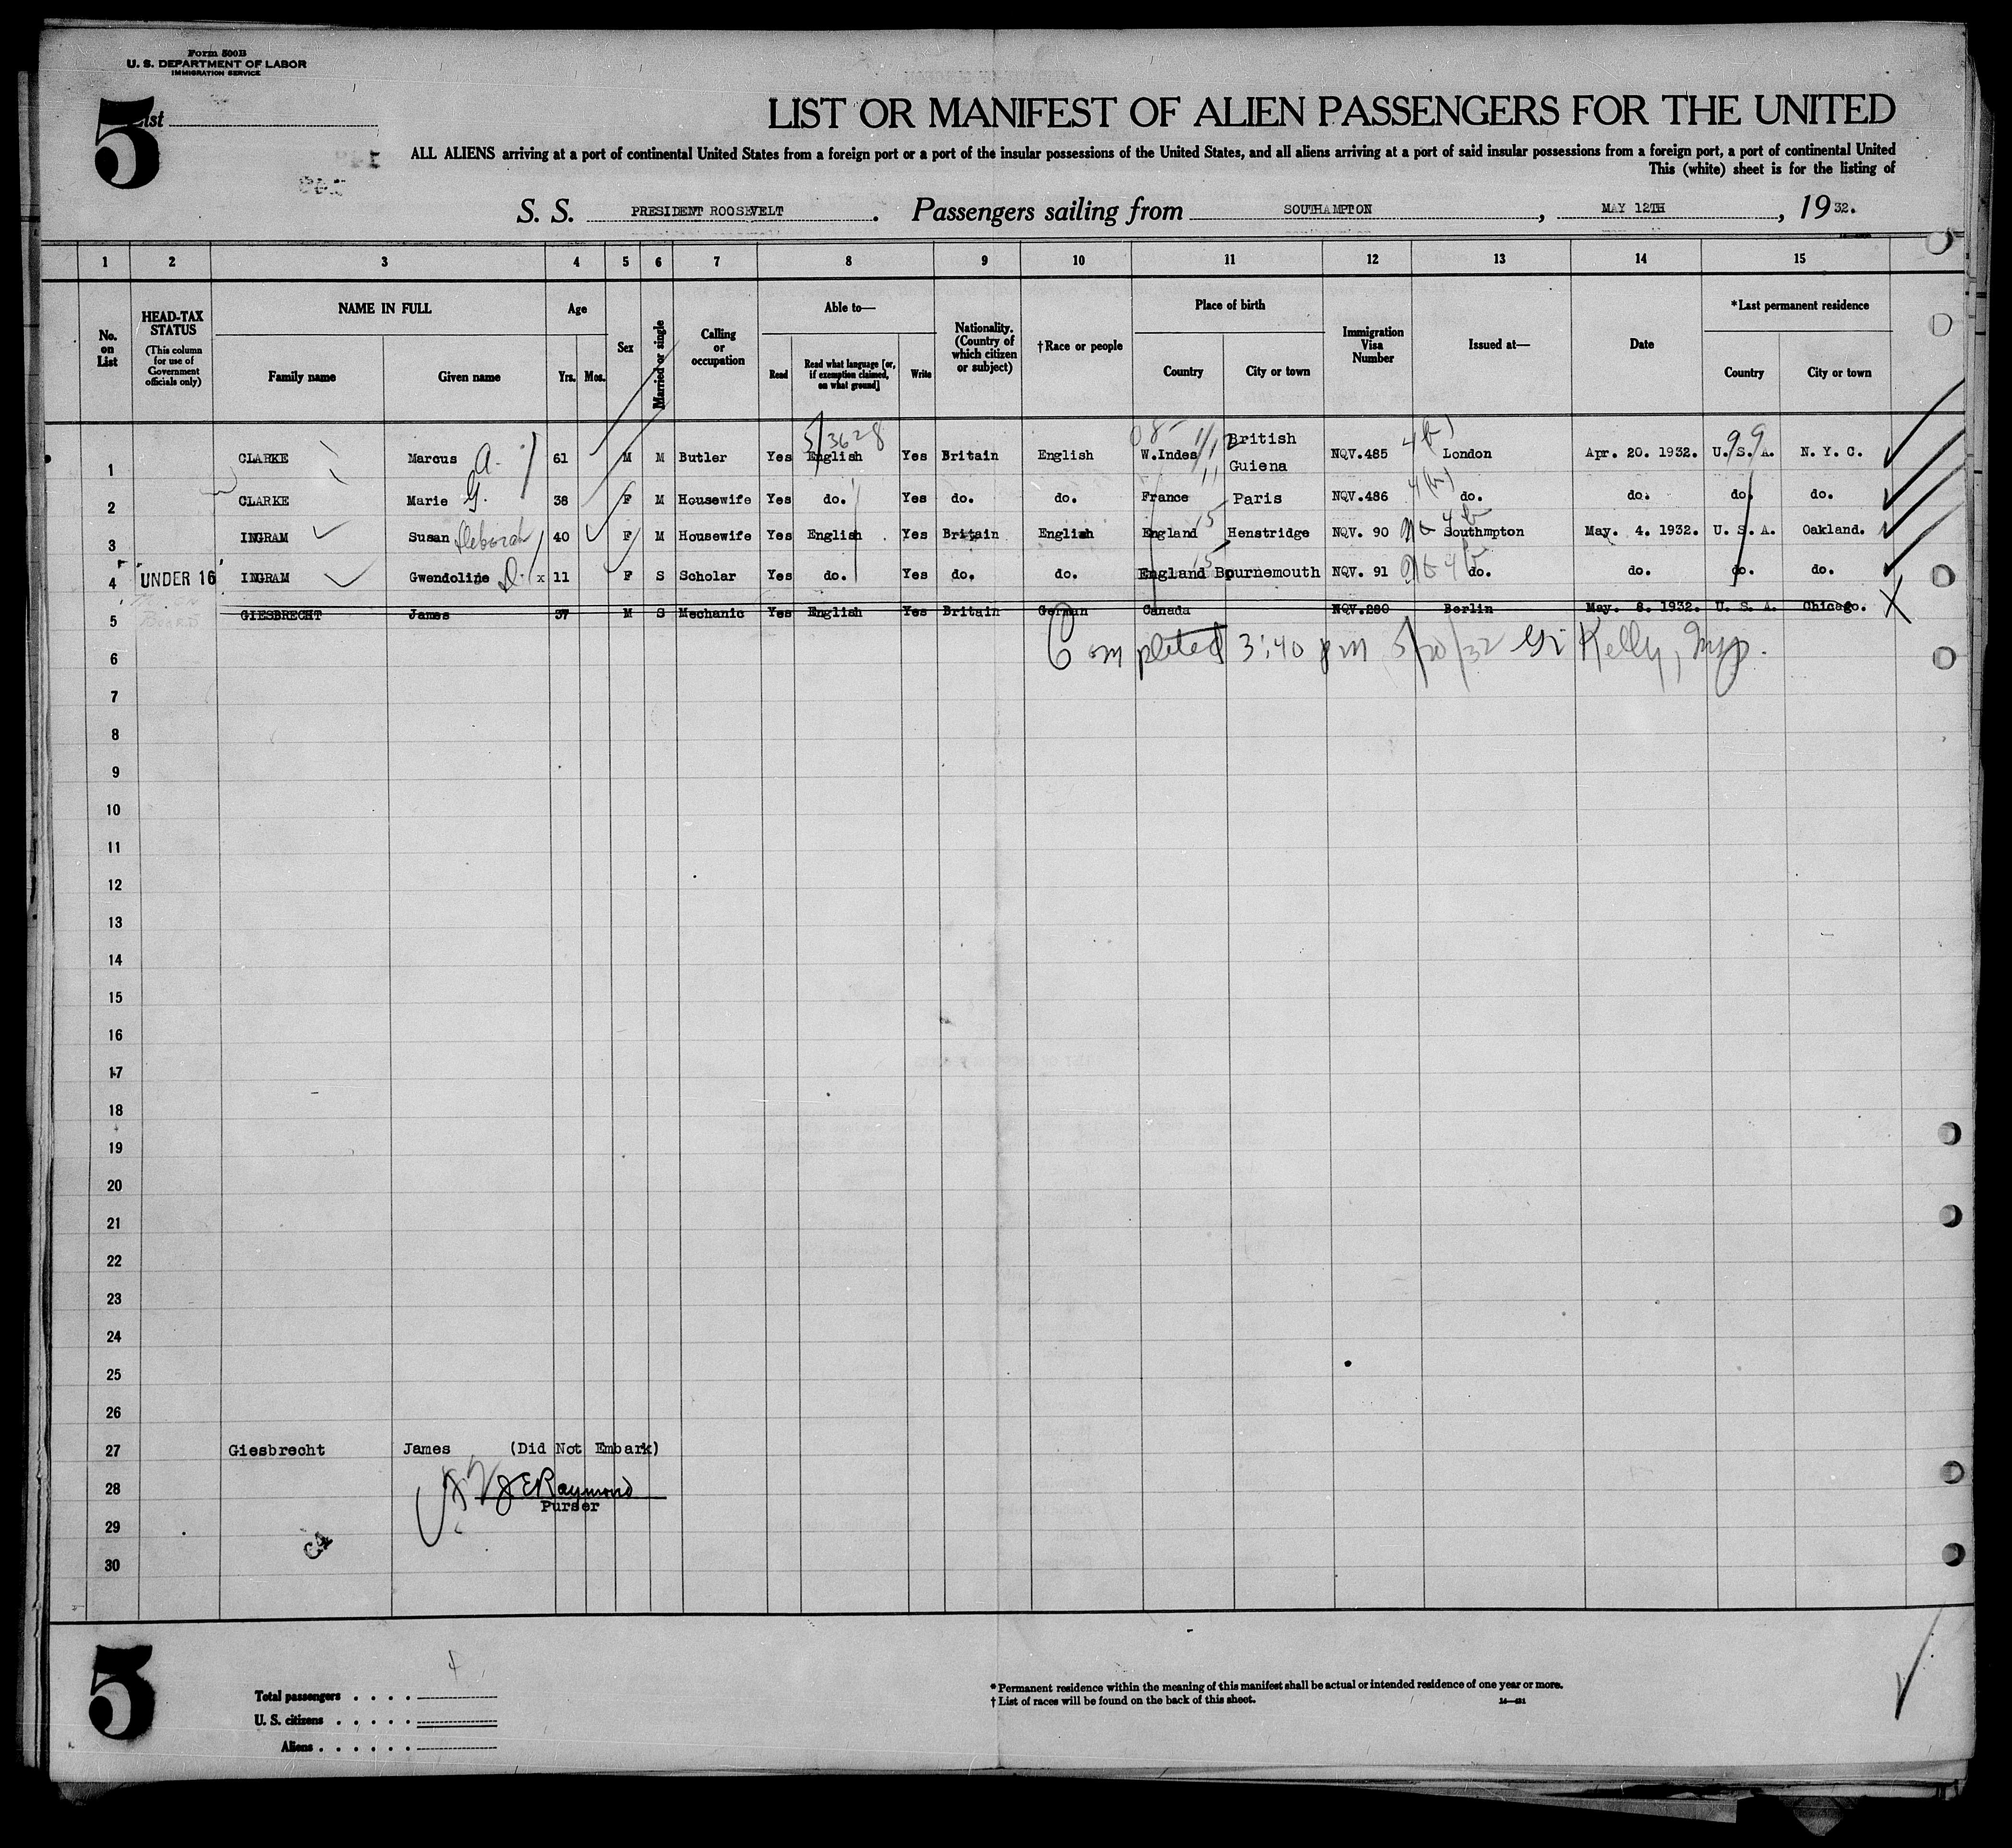 Form 500B
U. S. DEPARTMENT OF LABOR
IMMIGRATION SERVICE
5
List
LIST OR MANIFEST OF ALIEN PASSENGERS FOR THE UNITED
ALL ALIENS arriving at a port of continental United States from a foreign port or a port of the insular possessions of the United States, and all aliens arriving at a port of said insular possessions from a foreign port, a port of continental United
This (white) sheet is for the listing of
S. S. PRESIDENT ROOSEVELT. Passengers sailing from SOUTHAMPTON, MAY 12TH, 1932.
1 2 3 4 5 6 7 8 9 10 11 12 13 14 15
No. on List
HEAD-TAX STATUS (This column for use of Government officials only)
NAME IN FULL
Family name Given name
Age
Yrs. Mos.
Sex
Married or single
Calling or occupation
Able to—
Read Read what language [or, if exemption claimed, on what ground] Write
Nationality. (Country of which citizen or subject)
†Race or people
Place of birth
Country City or town
Immigration Visa Number
Issued at—
Date
*Last permanent residence
Country City or town
5/3628
1 CLARKE Marcus A. 61 M M Butler Yes English Yes Britain English W.Indes British Guiena NQV.485 4(b) London Apr. 20. 1932. U. S. A. N. Y. C.
2 CLARKE Marie G. 38 F M Housewife Yes do. Yes do. do. France Paris NQV.486 4(b) do. do. do. do.
3 INGRAM Susan Deborah 40 F M Housewife Yes English Yes Britain English England 15 Henstridge NQV. 90 4b Southmpton May. 4. 1932. U. S. A. Oakland.
4 UNDER 16 INGRAM Gwendoline D. x 11 F S Scholar Yes do. Yes do. do. England 15 Bournemouth NQV. 91 4b do. do. do. do.
5 GIESBRECHT James 37 M S Mechanic Yes English Yes Britain German Canada NQV.280 Berlin May. 8. 1932. U. S. A. Chicago. X
6 Completed 3:40 pm 5/20/32 Kelly, Insp.
7
8
9
10
11
12
13
14
15
16
17
18
19
20
21
22
23
24
25
26
27 Giesbrecht James (Did Not Embark)
28 J E Raymond
Purser
29
30
5
Total passengers . . . .
U. S. citizens . . . . .
Aliens . . . . . .
*Permanent residence within the meaning of this manifest shall be actual or intended residence of one year or more.
†List of races will be found on the back of this sheet.